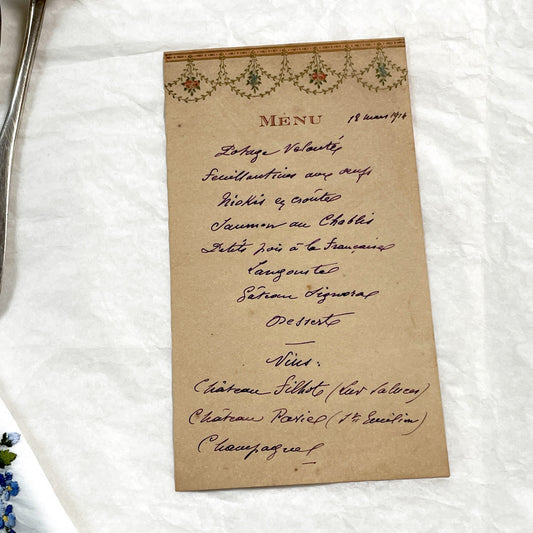 MENU 18 mars 1914
Potage Veloutés
Feuillantines aux œufs
Niokis en croûtes
Saumon au Chablis
Petits pois à la Française
Langouste
Gâteau Signora
Desserts
Vins:
Château Filhot (Lur Saluces)
Château Pavie (St Emilion)
Champagne